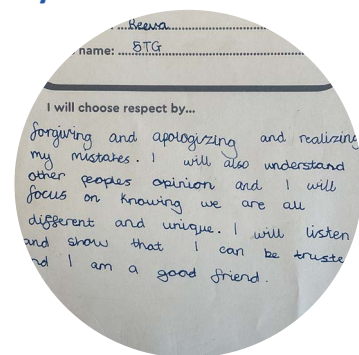 Keeva
name: 5TG
I will choose respect by...
forgiving and apologizing and realizing
my mistakes. I will also understand
other peoples opinion and I will
focus on knowing we are all
different and unique. I will listen
and show that I can be truste
nd I am a good friend.